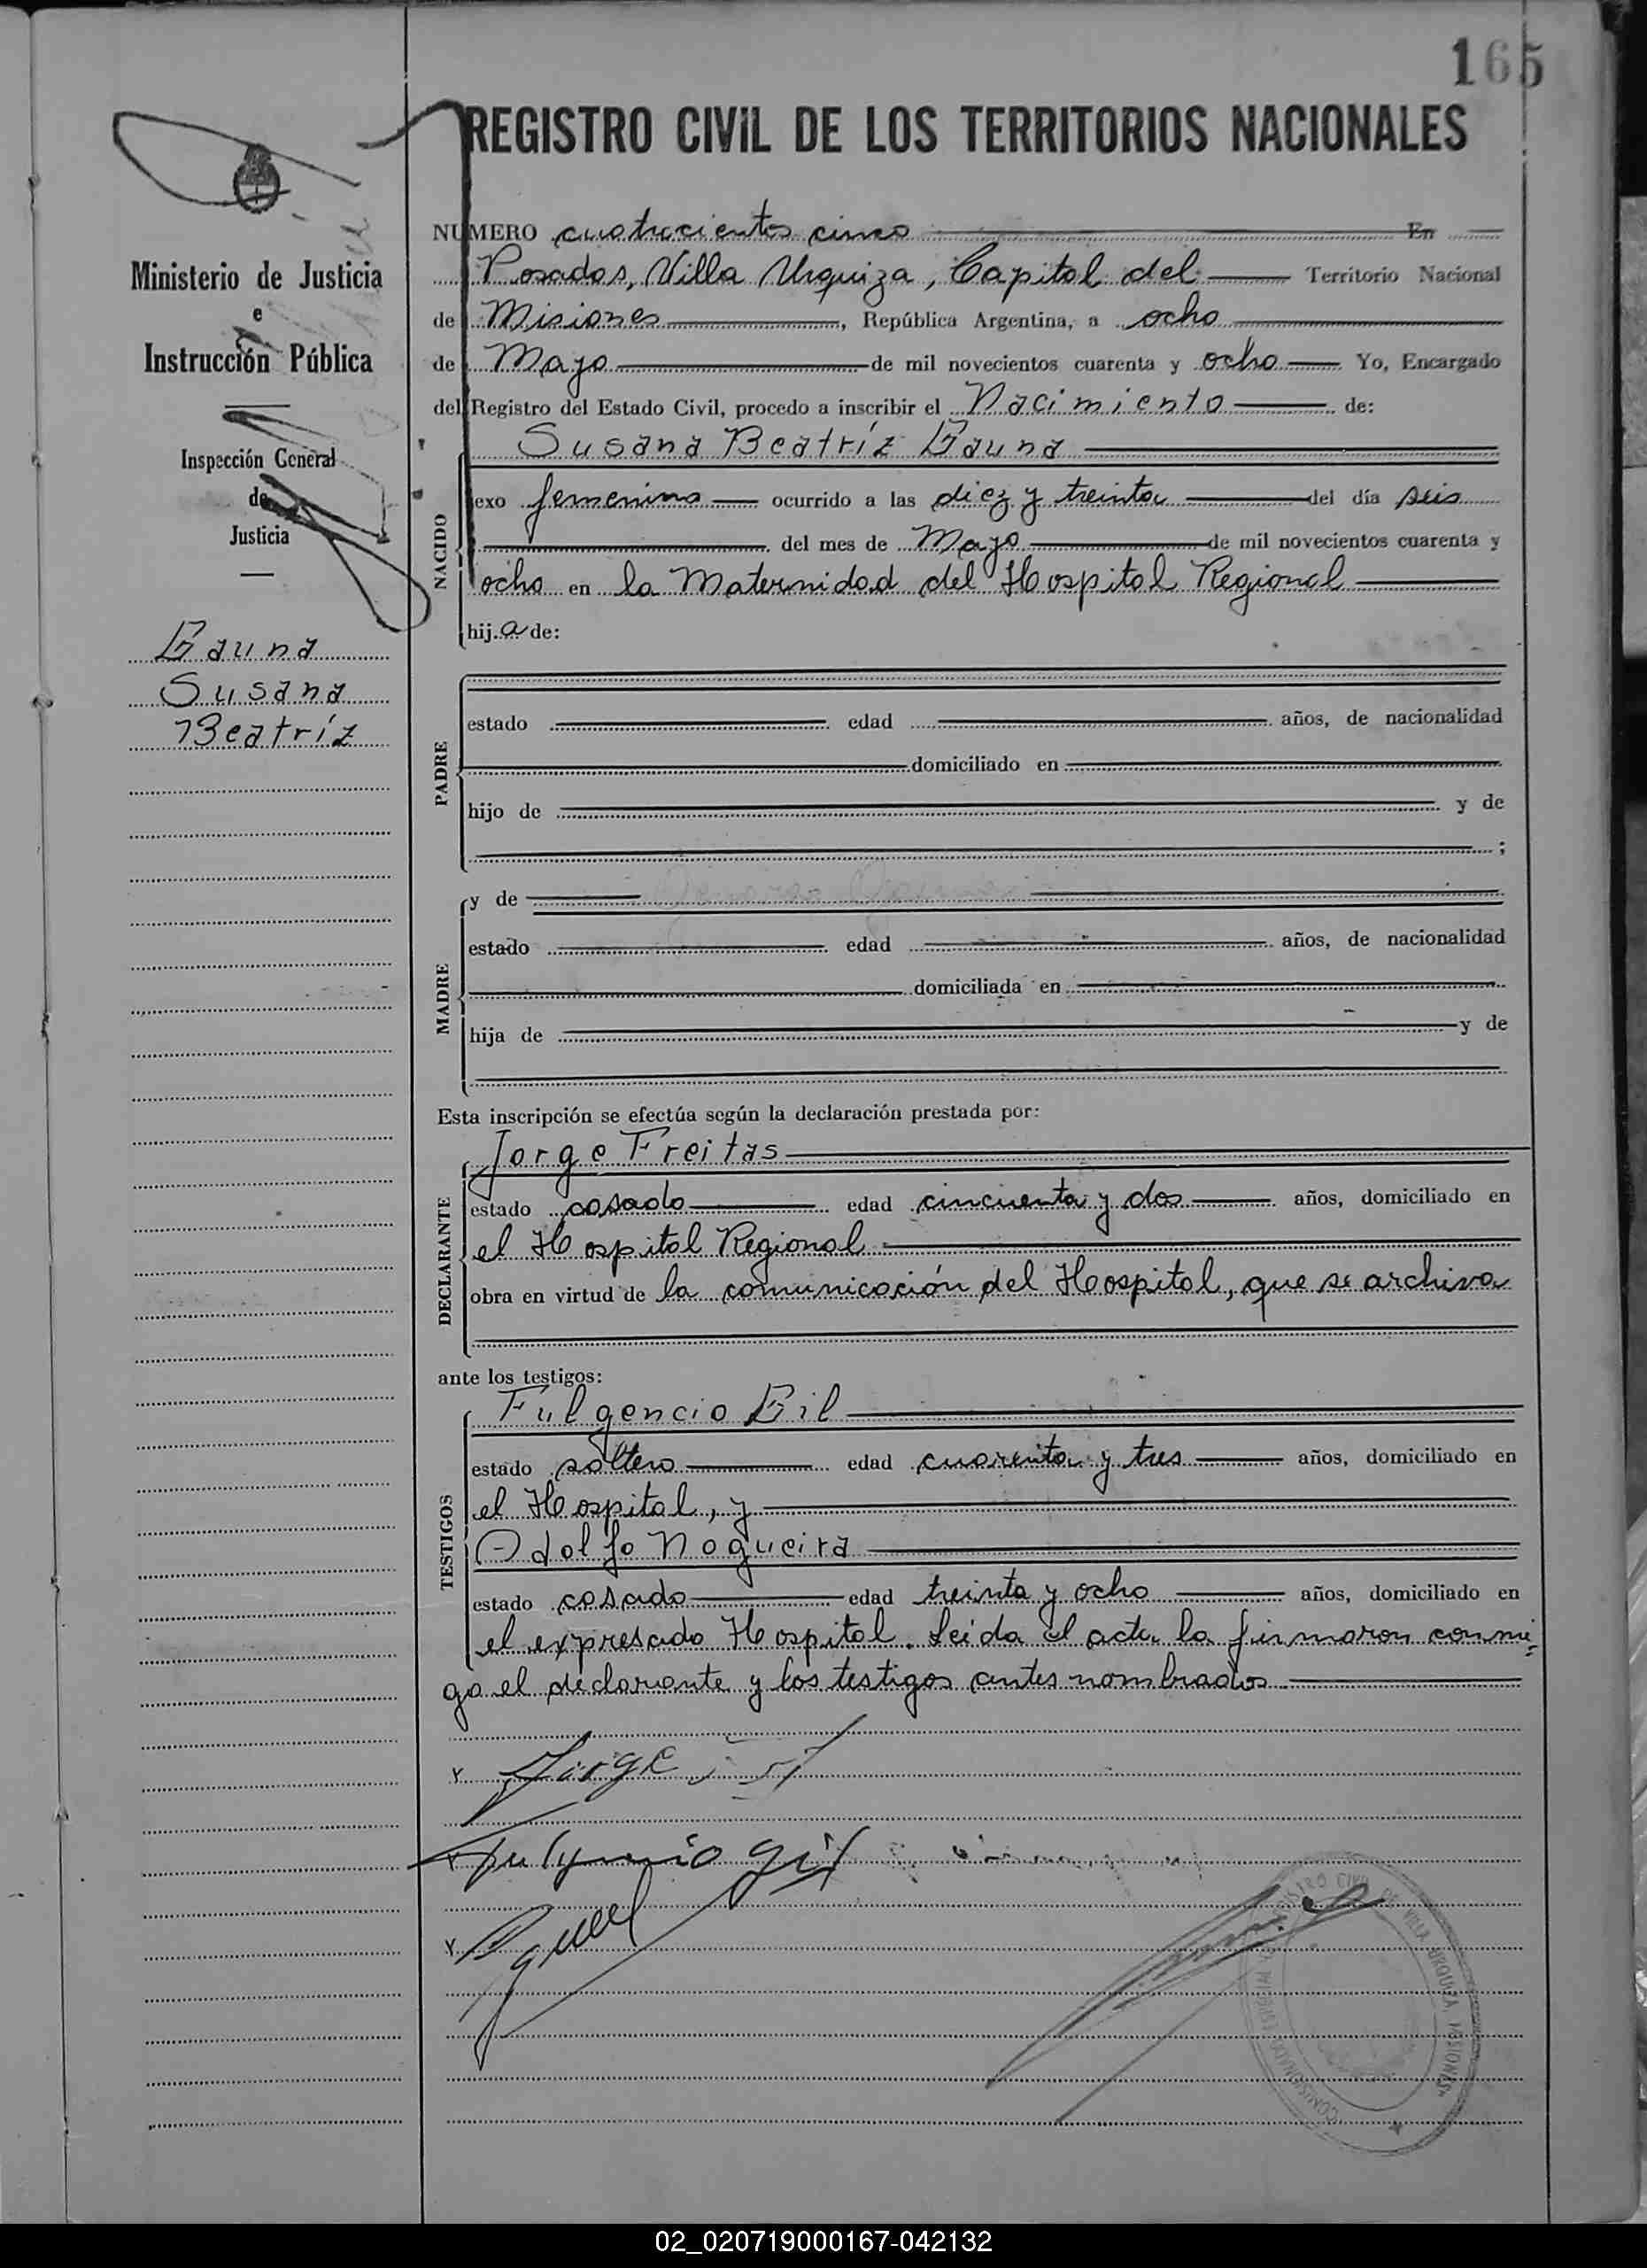 165
REGISTRO CIVIL DE LOS TERRITORIOS NACIONALES
Ministerio de Justicia
e
Instrucción Pública
Inspección General
de
Justicia
Gauna
Susana
Beatríz
NUMERO cuatrocientos cinco En
Posadas, Villa Urquiza, Capital del Territorio Nacional
de Misiones, República Argentina, a ocho
de Mayo de mil novecientos cuarenta y ocho Yo, Encargado
del Registro del Estado Civil, procedo a inscribir el Nacimiento de:
Susana Beatríz Gauna
NACIDO
exo femenino ocurrido a las diez y treinta del día seis
del mes de Mayo de mil novecientos cuarenta y
ocho en la Maternidad del Hospital Regional
hij.a de:
PADRE
estado edad años, de nacionalidad
domiciliado en
hijo de y de
;
MADRE
y de
estado edad años, de nacionalidad
domiciliada en
hija de y de
Esta inscripción se efectúa según la declaración prestada por:
DECLARANTE
Jorge Freitas
estado casado edad cincuenta y dos años, domiciliado en
el Hospital Regional
obra en virtud de la comunicación del Hospital, que se archiva
ante los testigos:
TESTIGOS
Fulgencio Gil
estado soltero edad cuarenta y tres años, domiciliado en
el Hospital, y
Adolfo Nogueira
estado casado edad treinta y ocho años, domiciliado en
el expresado Hospital. Leida el acta la firmaron conmi-
go el declarante y los testigos antes nombrados
Jorge
Fulgencio Gil
REGISTRO CIVIL DE VILLA URQUIZA, MISIONES
02_020719000167-042132